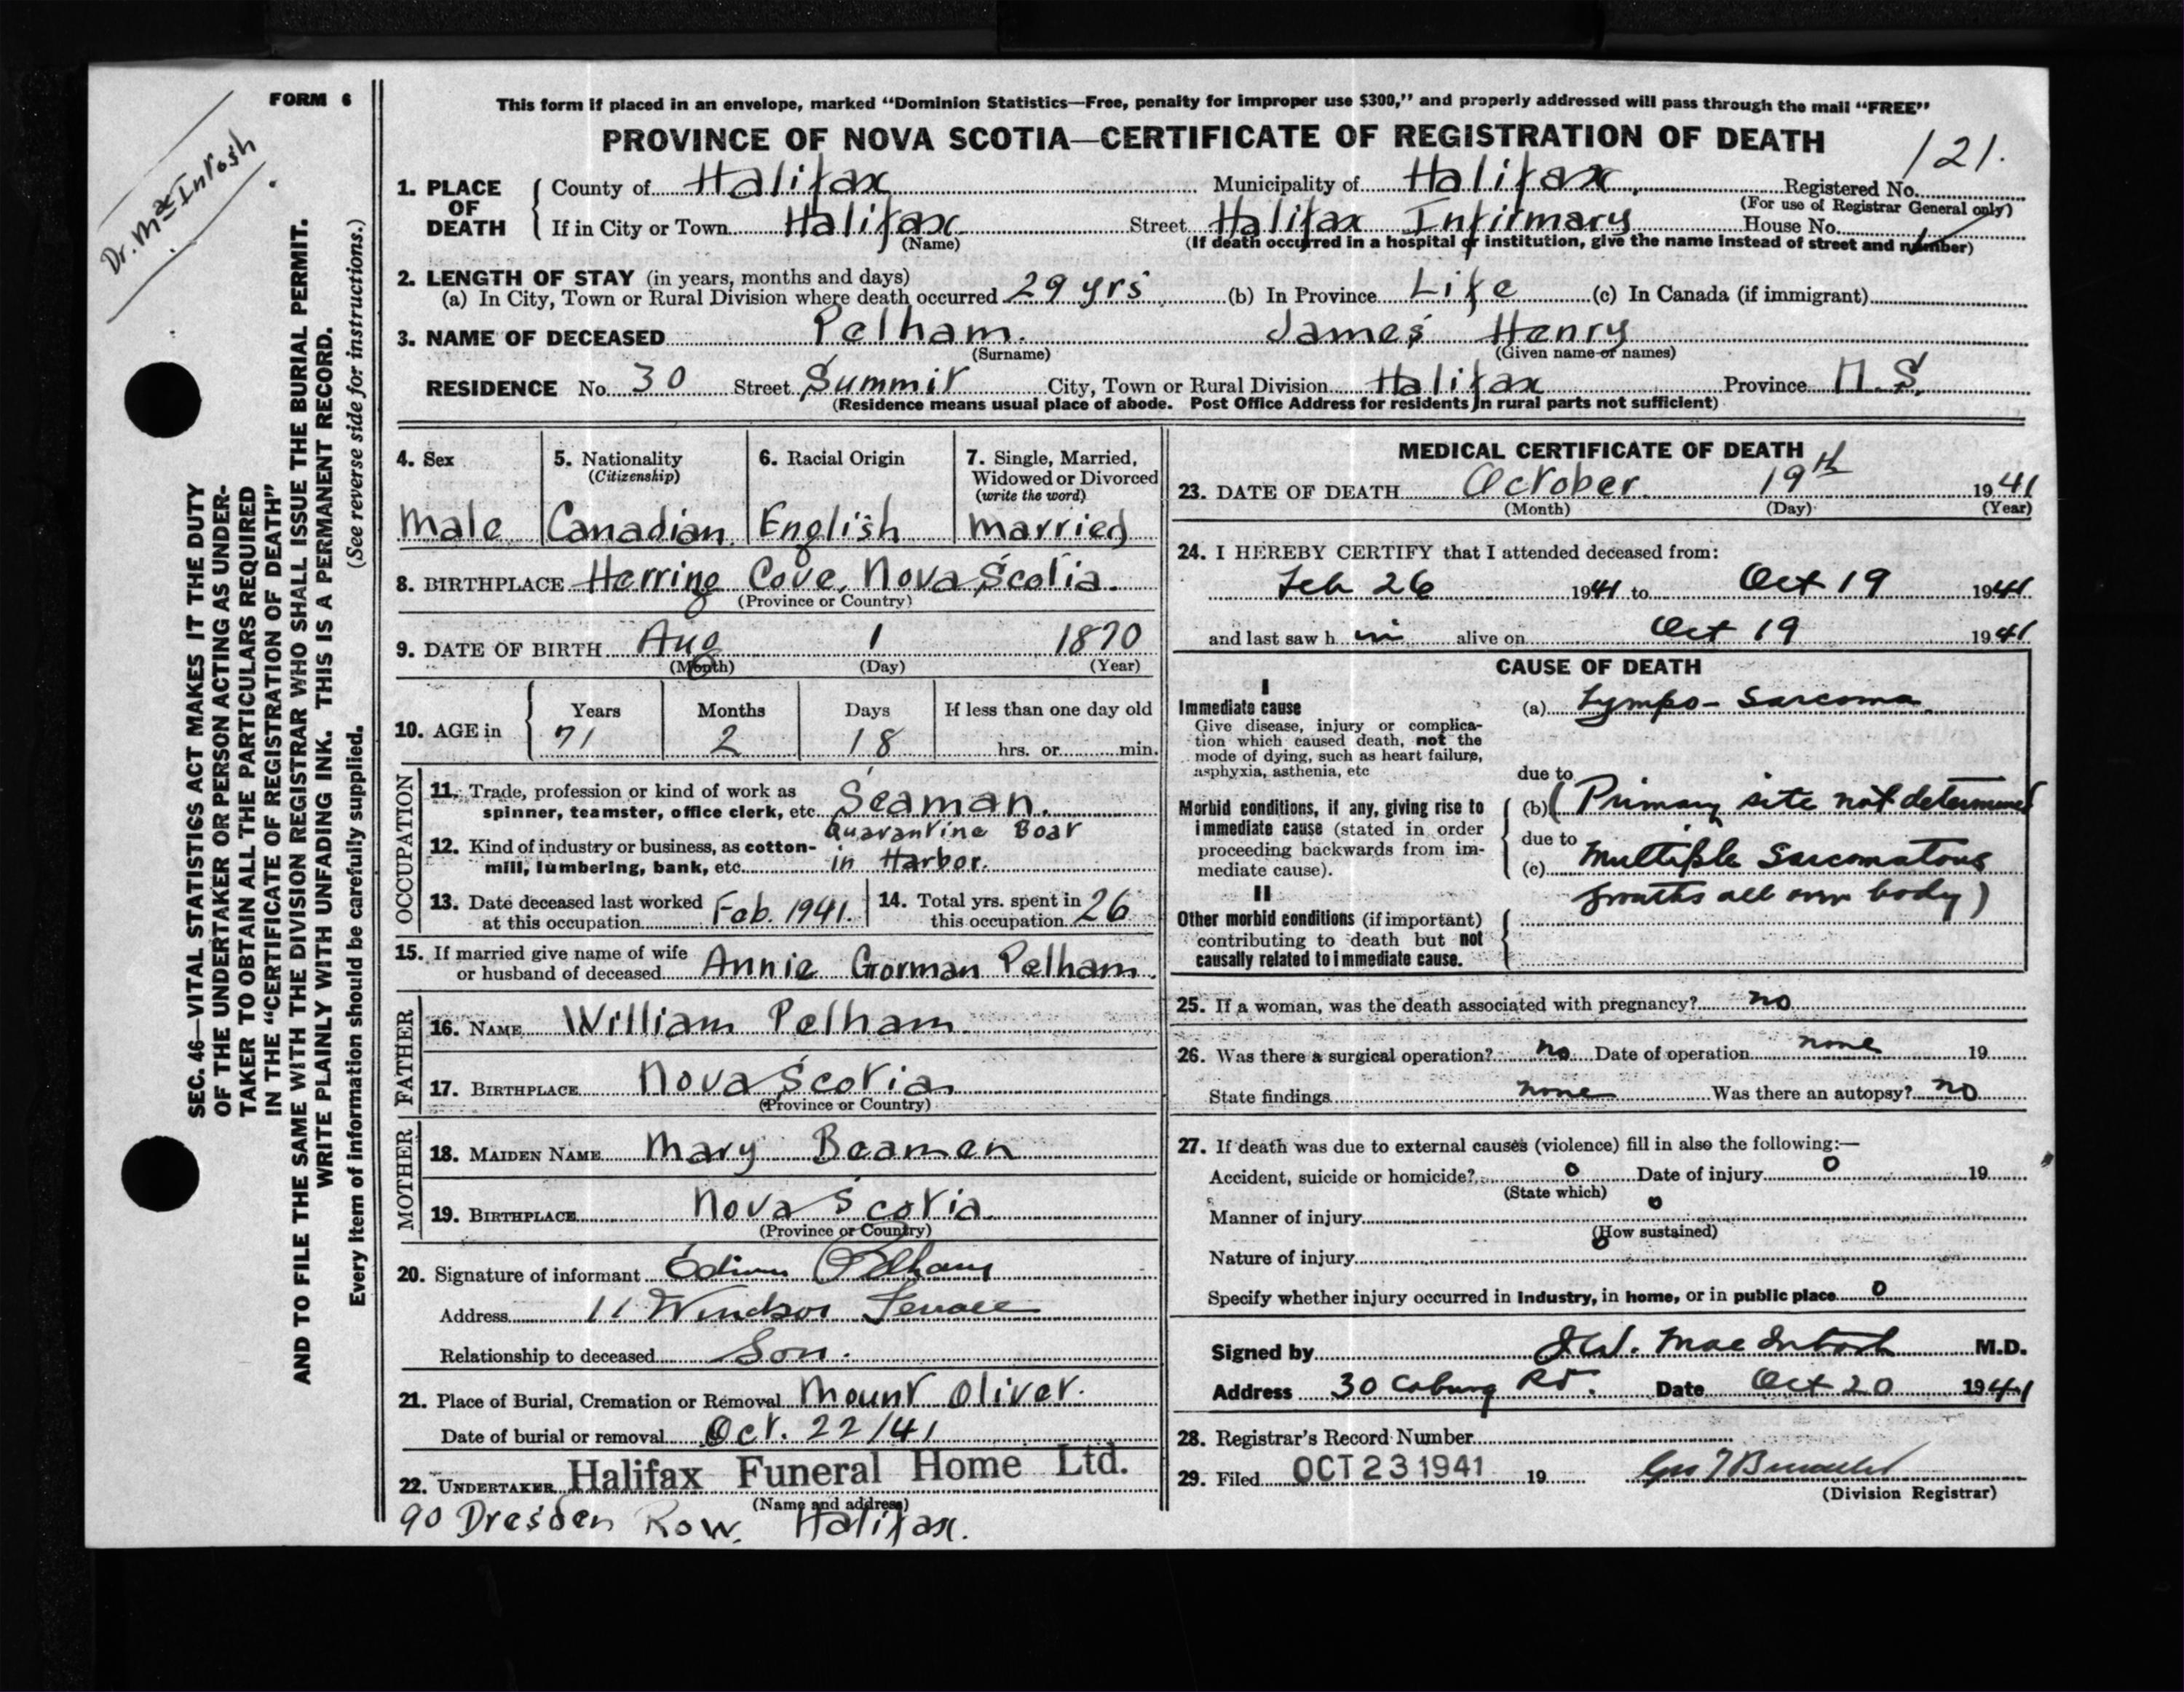 FORM 6
Dr. MacIntosh
SEC. 46—VITAL STATISTICS ACT MAKES IT THE DUTY
OF THE UNDERTAKER OR PERSON ACTING AS UNDER-
TAKER TO OBTAIN ALL THE PARTICULARS REQUIRED
IN THE "CERTIFICATE OF REGISTRATION OF DEATH"
AND TO FILE THE SAME WITH THE DIVISION REGISTRAR WHO SHALL ISSUE THE BURIAL PERMIT.
WRITE PLAINLY WITH UNFADING INK. THIS IS A PERMANENT RECORD.
Every item of information should be carefully supplied. (See reverse side for instructions.)
This form if placed in an envelope, marked "Dominion Statistics—Free, penalty for improper use $300," and properly addressed will pass through the mail "FREE"
PROVINCE OF NOVA SCOTIA—CERTIFICATE OF REGISTRATION OF DEATH
1. PLACE OF DEATH County of Halifax Municipality of Halifax Registered No. 121.
(For use of Registrar General only)
If in City or Town Halifax Street Halifax Infirmary House No.
(Name) (If death occurred in a hospital or institution, give the name instead of street and number)
2. LENGTH OF STAY (in years, months and days)
(a) In City, Town or Rural Division where death occurred 29 yrs (b) In Province Life (c) In Canada (if immigrant)
3. NAME OF DECEASED Pelham James Henry
(Surname) (Given name or names)
RESIDENCE No. 30 Street Summit City, Town or Rural Division Halifax Province N.S.
(Residence means usual place of abode. Post Office Address for residents in rural parts not sufficient)
4. Sex 5. Nationality (Citizenship) 6. Racial Origin 7. Single, Married, Widowed or Divorced (write the word)
Male Canadian English Married
8. BIRTHPLACE Herring Cove, Nova Scotia.
(Province or Country)
9. DATE OF BIRTH Aug 1 1870
(Month) (Day) (Year)
10. AGE in Years Months Days If less than one day old
71 2 18 hrs. or min.
OCCUPATION
11. Trade, profession or kind of work as
spinner, teamster, office clerk, etc. Seaman.
12. Kind of industry or business, as cotton-
mill, lumbering, bank, etc. Quarantine Boat
in Harbor.
13. Date deceased last worked
at this occupation Feb. 1941.
14. Total yrs. spent in
this occupation 26
15. If married give name of wife
or husband of deceased Annie Gorman Pelham.
FATHER
16. NAME William Pelham
17. BIRTHPLACE Nova Scotia
(Province or Country)
MOTHER
18. MAIDEN NAME Mary Beamen
19. BIRTHPLACE Nova Scotia
(Province or Country)
20. Signature of informant Edison Pelham
Address 11 Windsor Terrace
Relationship to deceased Son.
21. Place of Burial, Cremation or Removal Mount Olivet.
Date of burial or removal Oct. 22/41
22. UNDERTAKER Halifax Funeral Home Ltd.
(Name and address)
90 Dresden Row. Halifax.
MEDICAL CERTIFICATE OF DEATH
23. DATE OF DEATH October 19th 1941
(Month) (Day) (Year)
24. I HEREBY CERTIFY that I attended deceased from:
Feb 26 1941 to Oct 19 1941
and last saw h im alive on Oct 19 1941
CAUSE OF DEATH
I
Immediate cause
Give disease, injury or complica-
tion which caused death, not the
mode of dying, such as heart failure,
asphyxia, asthenia, etc
(a) Lympo-Sarcoma
due to
Morbid conditions, if any, giving rise to
immediate cause (stated in order
proceeding backwards from im-
mediate cause).
(b) (Primary site not determined
due to
(c) Multiple Sarcomatous
growths all over body)
II
Other morbid conditions (if important)
contributing to death but not
causally related to immediate cause.
25. If a woman, was the death associated with pregnancy? no
26. Was there a surgical operation? no Date of operation none 19
State findings none Was there an autopsy? no
27. If death was due to external causes (violence) fill in also the following:—
Accident, suicide or homicide? 0 Date of injury 0 19
(State which)
Manner of injury 0
(How sustained)
Nature of injury 0
Specify whether injury occurred in industry, in home, or in public place 0
Signed by J.W. MacIntosh M.D.
Address 30 Coburg Rd. Date Oct 20 1941
28. Registrar's Record Number
29. Filed OCT 23 1941 19
(Division Registrar)